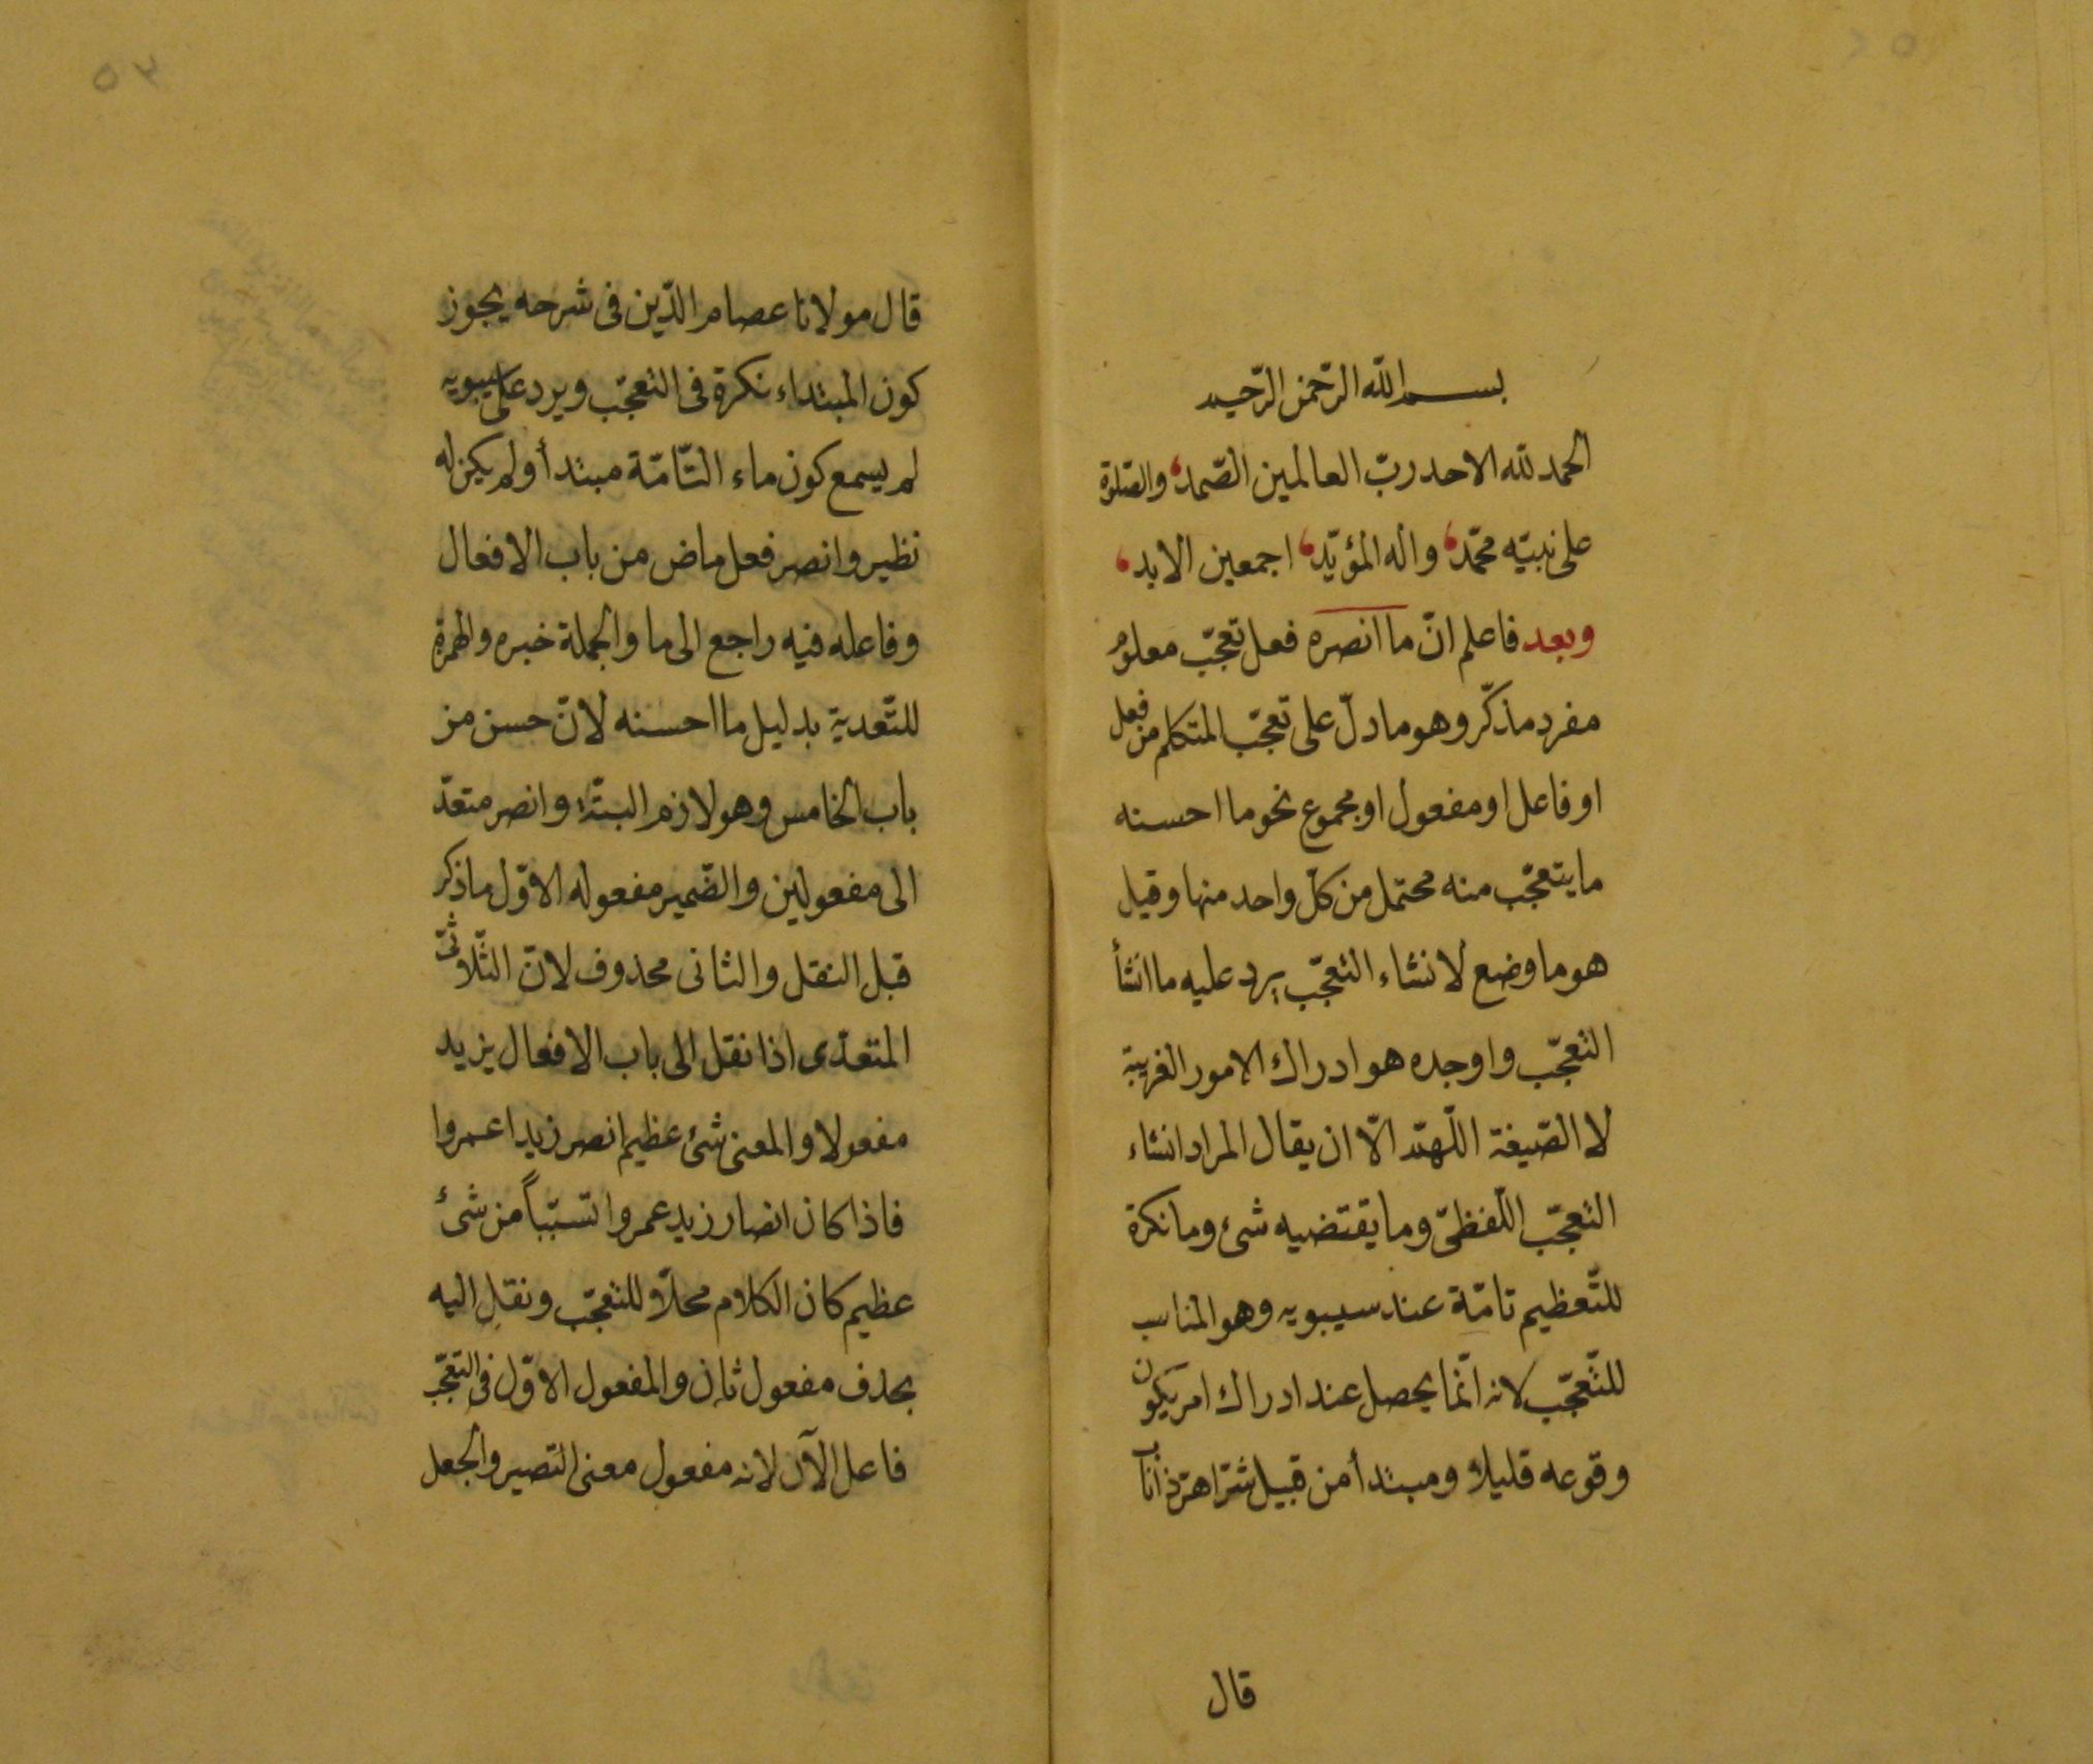 بسم الله الرّحمن الرّحيم
الحمد لله الاحد ربّ العالمين الصّمد، والصّلوة
على نبيّه محمّد، واله المؤيّد، اجمعين الابد،
وبعد فاعلم انّ ما انصره فعل تعجّب معلوم
مفرد مذكّر وهو ما دلّ على تعجّب المتكلم من فعل
او فاعل او مفعول او مجموع نحو ما احسنه
ما يتعجّب منه محتمل من كلّ واحد منها وقيل
هو ما وضع لانشاء التعجّب يرد عليه ما انشأ
التعجّب واوجده هو ادراك الامور الغريبة
لا الصّيغة اللّهمّ الّا ان يقال المراد انشاء
التعجّب اللّفظىّ وما يقتضيه شئ وما نكرة
للتّعظيم تامّة عند سيبويه وهو المناسب
للتّعجّب لانه انّما يحصل عند ادراك امر يكون
وقوعه قليلا ومبتدأ من قبيل شرّ اهرّ ذا ناب
قال
٥٣
قال مولانا عصام الدّين فى شرحه يجوز
كون المبتداء نكرة فى التعجّب ويرد على سيبويه
لم يسمع كون ماء التّامّة مبتدأ ولم يكن له
نظير وانصر فعل ماض من باب الافعال
وفاعله فيه راجع الى ما والجملة خبره والهمزة
للتّعدية بدليل ما احسنه لانّ حسن من
باب الخامس وهو لازم البتّة وانصر متعدّ
الى مفعولين والضّمير مفعوله الاوّل ما ذكر
قبل النقل والثانى محذوف لانّ الثّلاثىّ
المتعدّى اذا نقل الى باب الافعال يزيد
مفعولا والمعنى شئ عظيم انصر زيدا عمروا
فاذا كان انصار زيد عمروا تسبّباً من شئ
عظيم كان الكلام محلّا للتعجّب ونقل اليه
بحذف مفعول ثان والمفعول الاوّل فى التعجّب
فاعل الآن لانه مفعول معنى التصير والجعل